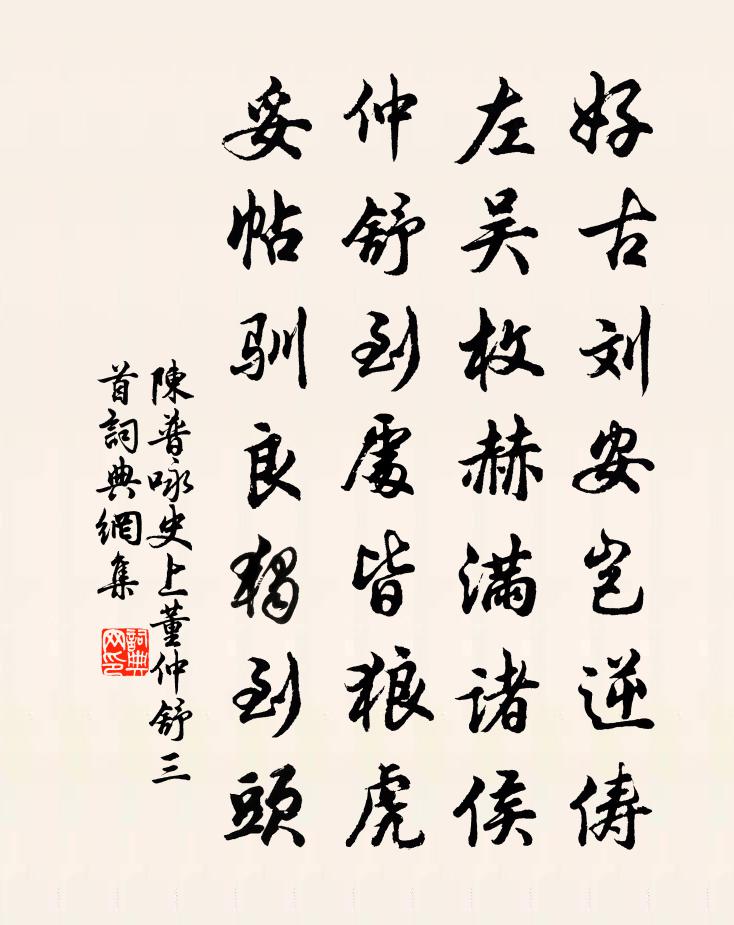 好古刘安岂逆俦
左吴枚赫满诸侯
仲舒到處皆狼虎
妥帖驯良獨到頭
陳普咏史上董仲舒三
首詞典網集
詞典
网印